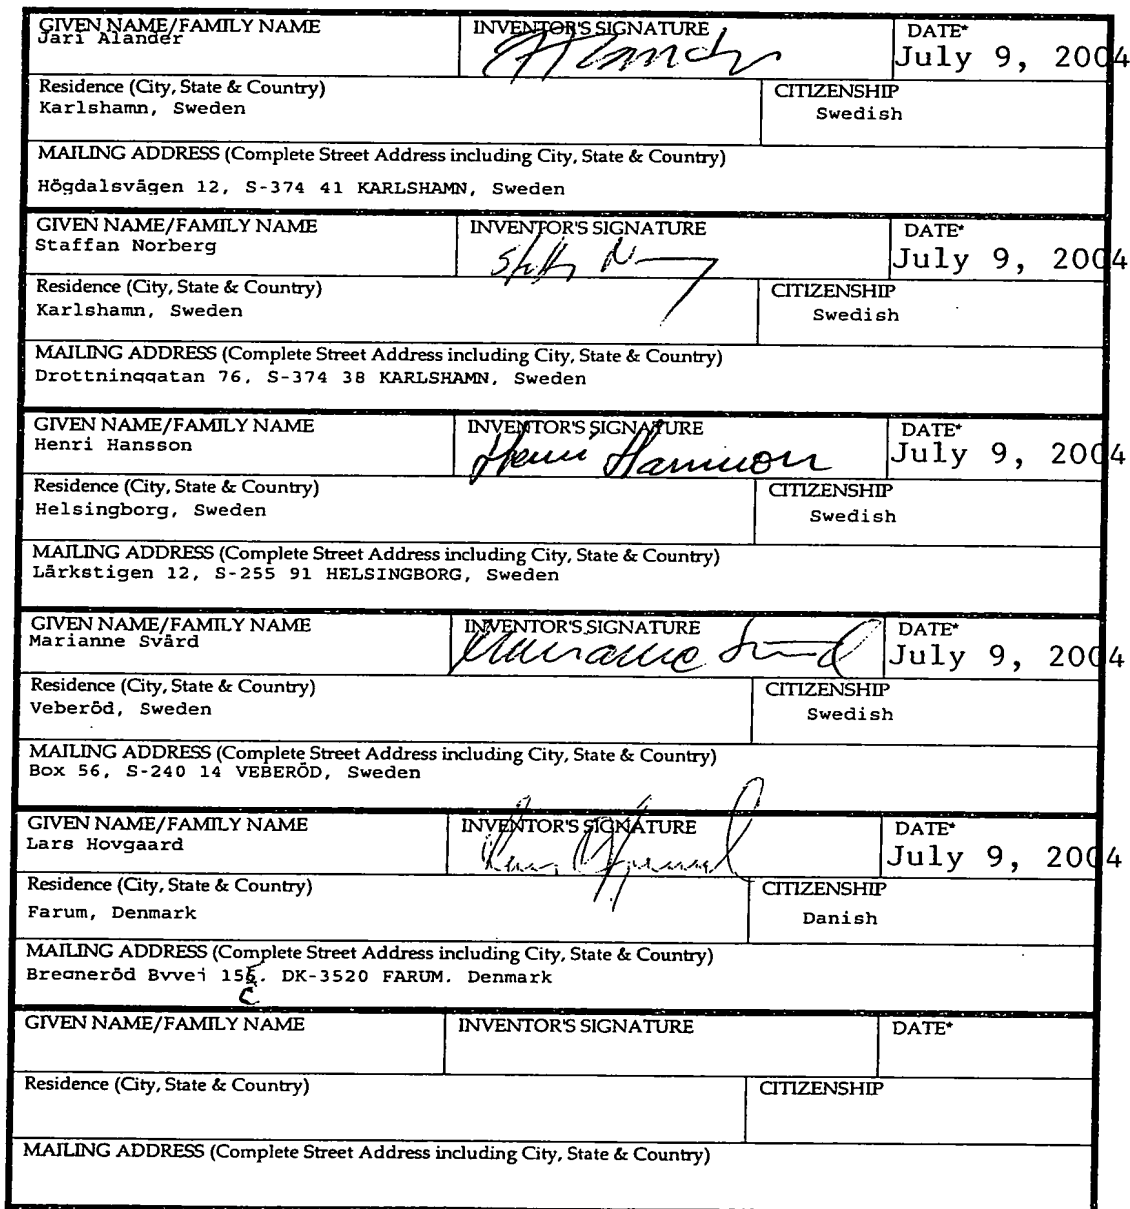 GIVEN NAME/FAMILY NAME INVENTOR'S SIGNATURE DATE*
Jari Alander July 9, 2004
Residence (City, State & Country) CITIZENSHIP
Karlshamn, Sweden Swedish
MAILING ADDRESS (Complete Street Address including City, State & Country)
Högdalsvägen 12, S-374 41 KARLSHAMN, Sweden
GIVEN NAME/FAMILY NAME INVENTOR'S SIGNATURE DATE*
Staffan Norberg July 9, 2004
Residence (City, State & Country) CITIZENSHIP
Karlshamn, Sweden Swedish
MAILING ADDRESS (Complete Street Address including City, State & Country)
Drottninggatan 76, S-374 38 KARLSHAMN, Sweden
GIVEN NAME/FAMILY NAME INVENTOR'S SIGNATURE DATE*
Henri Hansson Henri Hansson July 9, 2004
Residence (City, State & Country) CITIZENSHIP
Helsingborg, Sweden Swedish
MAILING ADDRESS (Complete Street Address including City, State & Country)
Lärkstigen 12, S-255 91 HELSINGBORG, Sweden
GIVEN NAME/FAMILY NAME INVENTOR'S SIGNATURE DATE*
Marianne Svärd Marianne Svärd July 9, 2004
Residence (City, State & Country) CITIZENSHIP
Veberöd, Sweden Swedish
MAILING ADDRESS (Complete Street Address including City, State & Country)
Box 56, S-240 14 VEBERÖD, Sweden
GIVEN NAME/FAMILY NAME INVENTOR'S SIGNATURE DATE*
Lars Hovgaard July 9, 2004
Residence (City, State & Country) CITIZENSHIP
Farum, Denmark Danish
MAILING ADDRESS (Complete Street Address including City, State & Country)
Bregneröd Byvej DK-3520 FARUM. Denmark
GIVEN NAME/FAMILY NAME INVENTOR'S SIGNATURE DATE*
Residence (City, State & Country) CITIZENSHIP
MAILING ADDRESS (Complete Street Address including City, State & Country)